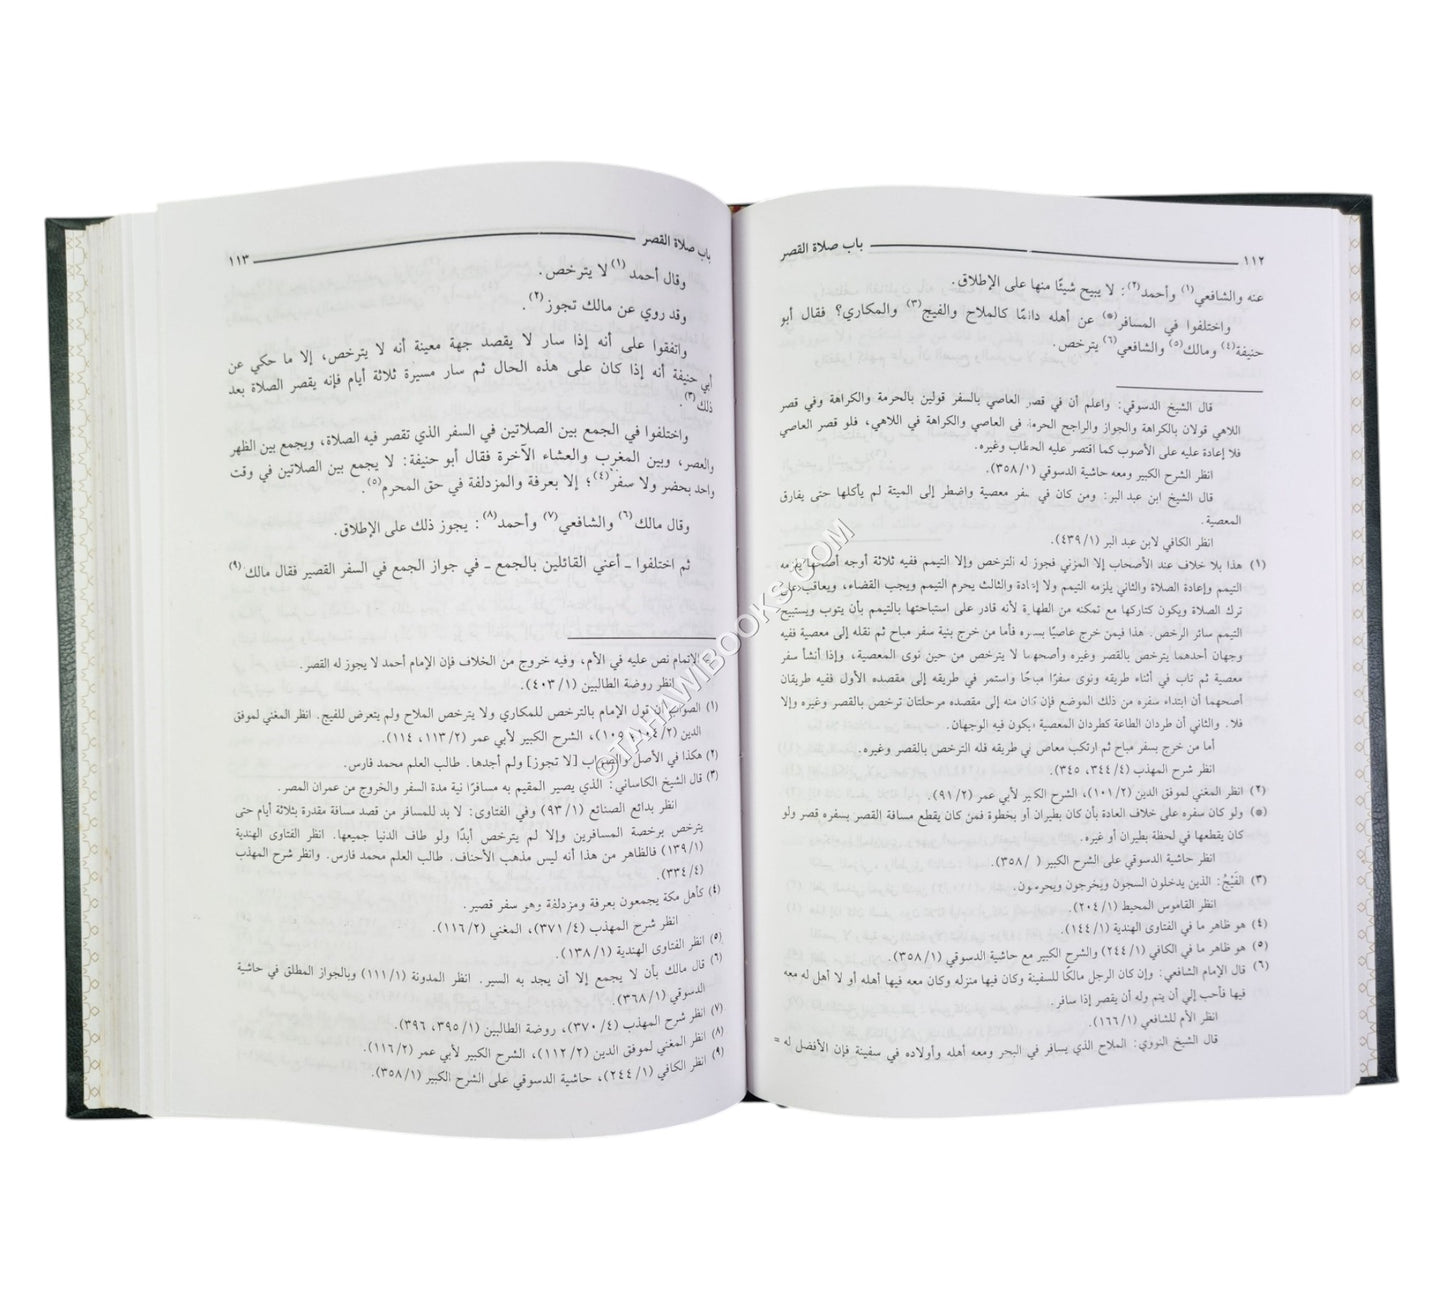 ١١٢ باب صلاة القصر
عنه والشافعي(١) وأحمد(٢): لا يبيح شيئًا منها على الإطلاق.
واختلفوا في المسافر(*) عن أهله دائمًا كالملاح والفيج(٣) والمكاري؟ فقال أبو
حنيفة(٤) ومالك(٥) والشافعي(٦) يترخص.
قال الشيخ الدسوقي: واعلم أن في قصر العاصي بالسفر قولين بالحرمة والكراهة وفي قصر
اللاهي قولان بالكراهة والجواز والراجح الحرمة في العاصي والكراهة في اللاهي، فلو قصر العاصي
فلا إعادة عليه على الأصوب كما اقتصر عليه الحطاب وغيره.
انظر الشرح الكبير ومعه حاشية الدسوقي (٣٥٨/١).
قال الشيخ ابن عبد البر: ومن كان في سفر معصية واضطر إلى الميتة لم يأكلها حتى يفارق
المعصية.
انظر الكافي لابن عبد البر (٤٣٩/١).
(١) هذا بلا خلاف عند الأصحاب إلا المزني فجوز له الترخص وإلا التيمم ففيه ثلاثة أوجه أصحها يلزمه
التيمم وإعادة الصلاة والثاني يلزمه التيمم ولا إعادة والثالث يحرم التيمم ويجب القضاء، ويعاقب على
ترك الصلاة ويكون كتاركها مع تمكنه من الطهارة لأنه قادر على استباحتها بالتيمم بأن يتوب ويستبيح
التيمم سائر الرخص. هذا فيمن خرج عاصيًا بسفره فأما من خرج بنية سفر مباح ثم نقله إلى معصية ففيه
وجهان أحدهما يترخص بالقصر وغيره وأصحهما لا يترخص من حين نوى المعصية، وإذا أنشأ سفر
معصية ثم تاب في أثناء طريقه ونوى سفرًا مباحًا واستمر في طريقه إلى مقصده الأول ففيه طريقان
أصحهما أن ابتداء سفره من ذلك الموضع فإن كان منه إلى مقصده مرحلتان ترخص بالقصر وغيره وإلا
فلا. والثاني أن طردان الطاعة كطردان المعصية فيكون فيه الوجهان.
أما من خرج بسفر مباح ثم ارتكب معاصي في طريقه فله الترخص بالقصر وغيره.
انظر شرح المهذب (٣٤٤/٤، ٣٤٥).
(٢) انظر المغني لموفق الدين (١٠١/٢)، الشرح الكبير لأبي عمر (٩١/٢).
(*) ولو كان سفره على خلاف العادة بأن كان بطيران أو بخطوة فمن كان يقطع مسافة القصر بسفره قصر ولو
كان يقطعها في لحظة بطيران أو غيره.
انظر حاشية الدسوقي على الشرح الكبير (٣٥٨/).
(٣) الفَيْجُ: الذين يدخلون السجون ويخرجون ويحرسون.
انظر القاموس المحيط (٢٠٤/١).
(٤) هو ظاهر ما في الفتاوى الهندية (١٤٤/١).
(٥) هو ظاهر ما في الكافي (٢٤٤/١) والشرح الكبير مع حاشية الدسوقي (٣٥٨/١).
(٦) قال الإمام الشافعي: وإن كان الرجل مالكًا للسفينة وكان فيها منزله وكان معه فيها أهله أو لا أهل له معه
فيها فأحب إلي أن يتم وله أن يقصر إذا سافر.
انظر الأم للشافعي (١٦٦/١).
قال الشيخ النووي: الملاح الذي يسافر في البحر ومعه أهله وأولاده في سفينة فإن الأفضل له =
باب صلاة القصر ١١٣
وقال أحمد(١) لا يترخص.
وقد روي عن مالك تجوز(٢).
واتفقوا على أنه إذا سار لا يقصد جهة معينة أنه لا يترخص، إلا ما حكي عن
أبي حنيفة أنه إذا كان على هذه الحال ثم سار مسيرة ثلاثة أيام فإنه يقصر الصلاة بعد
ذلك(٣).
واختلفوا في الجمع بين الصلاتين في السفر الذي تقصر فيه الصلاة، ويجمع بين الظهر
والعصر، وبين المغرب والعشاء الآخرة فقال أبو حنيفة: لا يجمع بين الصلاتين في وقت
واحد بحضر ولا سفر(٤)؛ إلا بعرفة والمزدلفة في حق المحرم(٥).
وقال مالك(٦) والشافعي(٧) وأحمد(٨): يجوز ذلك على الإطلاق.
ثم اختلفوا ـ أعني القائلين بالجمع ـ في جواز الجمع في السفر القصير فقال مالك(٩)
الإتمام نص عليه في الأم، وفيه خروج من الخلاف فإن الإمام أحمد لا يجوز له القصر.
انظر روضة الطالبين (٤٠٣/١).
(١) الصواب أن قول الإمام بالترخص للمكاري ولا يترخص الملاح ولم يتعرض للفيج. انظر المغني لموفق
الدين (١٠٤/٢، ١٠٥)، الشرح الكبير لأبي عمر (١١٣/٢، ١١٤).
(٢) هكذا في الأصل والصواب [لا تجوز] ولم أجدها. طالب العلم محمد فارس.
(٣) قال الشيخ الكاساني: الذي يصير المقيم به مسافرًا نية مدة السفر والخروج من عمران المصر.
انظر بدائع الصنائع (٩٣/١) وفي الفتاوى: لا بد للمسافر من قصد مسافة مقدرة بثلاثة أيام حتى
يترخص برخصة المسافرين وإلا لم يترخص أبدًا ولو طاف الدنيا جميعها. انظر الفتاوى الهندية
(١٣٩/١) فالظاهر من هذا أنه ليس مذهب الأحناف. طالب العلم محمد فارس. وانظر شرح المهذب
(٣٣٤/٤).
(٤) كأهل مكة يجمعون بعرفة ومزدلفة وهو سفر قصير.
انظر شرح المهذب (٣٧١/٤)، المغني (١١٦/٢).
(٥) انظر الفتاوى الهندية (١٣٨/١).
(٦) قال مالك بأن لا يجمع إلا أن يجد به السير. انظر المدونة (١١١/١) وبالجواز المطلق في حاشية
الدسوقي (٣٦٨/١).
(٧) انظر شرح المهذب (٣٧٠/٤)، روضة الطالبين (٣٩٥/١، ٣٩٦).
(٨) انظر المغني لموفق الدين (١١٢/٢)، الشرح الكبير لأبي عمر (١١٦/٢).
(٩) انظر الكافي (٢٤٤/١)، حاشية الدسوقي على الشرح الكبير (٣٥٨/١).
©TAHAWIBOOKS.COM